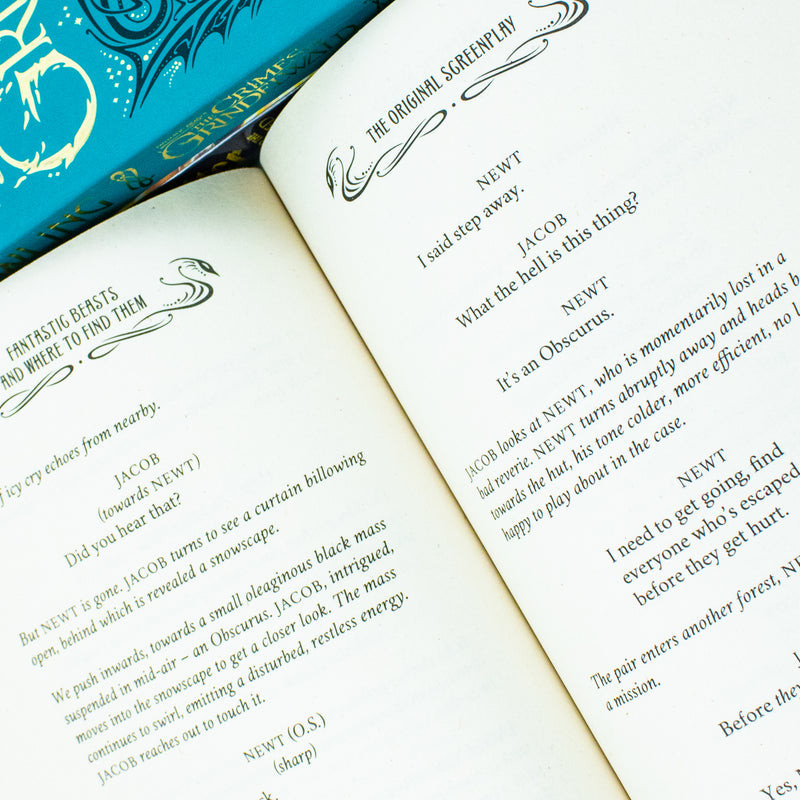 CRIMES
GRINDELWALD
&
LING
FANTASTIC BEASTS
AND WHERE TO FIND THEM
icy cry echoes from nearby.
JACOB
(towards NEWT)
Did you hear that?
But NEWT is gone. JACOB turns to see a curtain billowing
open, behind which is revealed a snowscape.
We push inwards, towards a small oleaginous black mass
suspended in mid-air – an Obscurus. JACOB, intrigued,
moves into the snowscape to get a closer look. The mass
continues to swirl, emitting a disturbed, restless energy.
JACOB reaches out to touch it.
NEWT (O.S.)
(sharp)
THE ORIGINAL SCREENPLAY
NEWT
I said step away.
JACOB
What the hell is this thing?
NEWT
It's an Obscurus.
JACOB looks at NEWT, who is momentarily lost in a
bad reverie. NEWT turns abruptly away and heads b
towards the hut, his tone colder, more efficient, no l
happy to play about in the case.
NEWT
I need to get going, find
everyone who's escaped
before they get hurt.
The pair enters another forest, NE
a mission.
Before they
Yes,